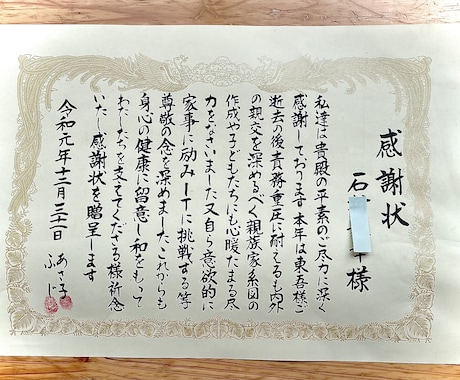 感謝状
石 様
私達は貴殿の平素のご尽力に深く
感謝しております本年は東吾様ご
逝去の後責務重圧に耐えるも内外
の親交を深めるべく親族家系図の
作成や子どもたちにも心暖たまる尽
力をなさいました又自ら意欲的に
家事に励みITに挑戦する等
尊敬の念を深めましたこれからも
身心の健康に留意し和をもって
わたしたちを支えてくださる様祈念
いたし感謝状を贈呈します
令和元年十二月三十一日
あさ子
ふじ